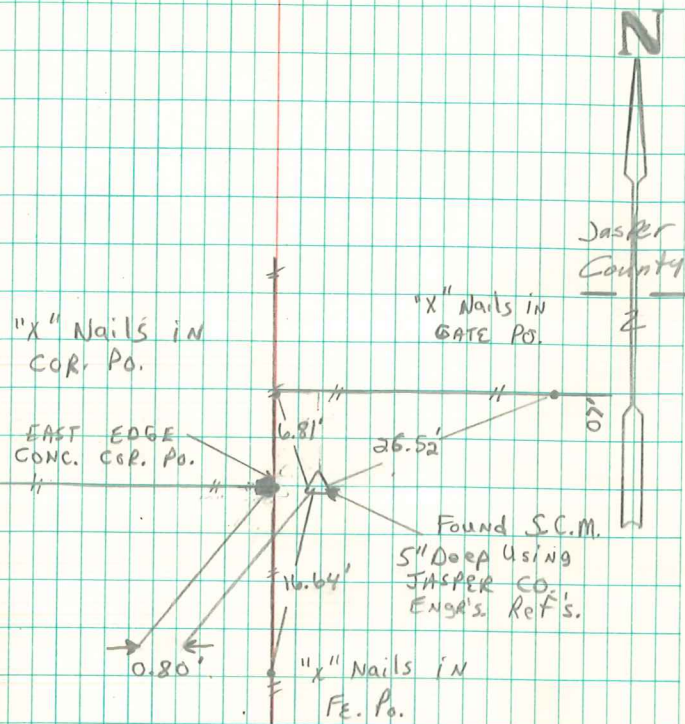 N
Jasper
County
"X" Nails in
GATE PO.
"X" Nails in
COR. PO.
EAST EDGE
CONC. COR. PO.
6.81'
26.52'
Found S.C.M.
5" Deep Using
JASPER CO.
ENGR'S. Ref's.
16.64'
0.80'
"X" Nails in
FE. PO.